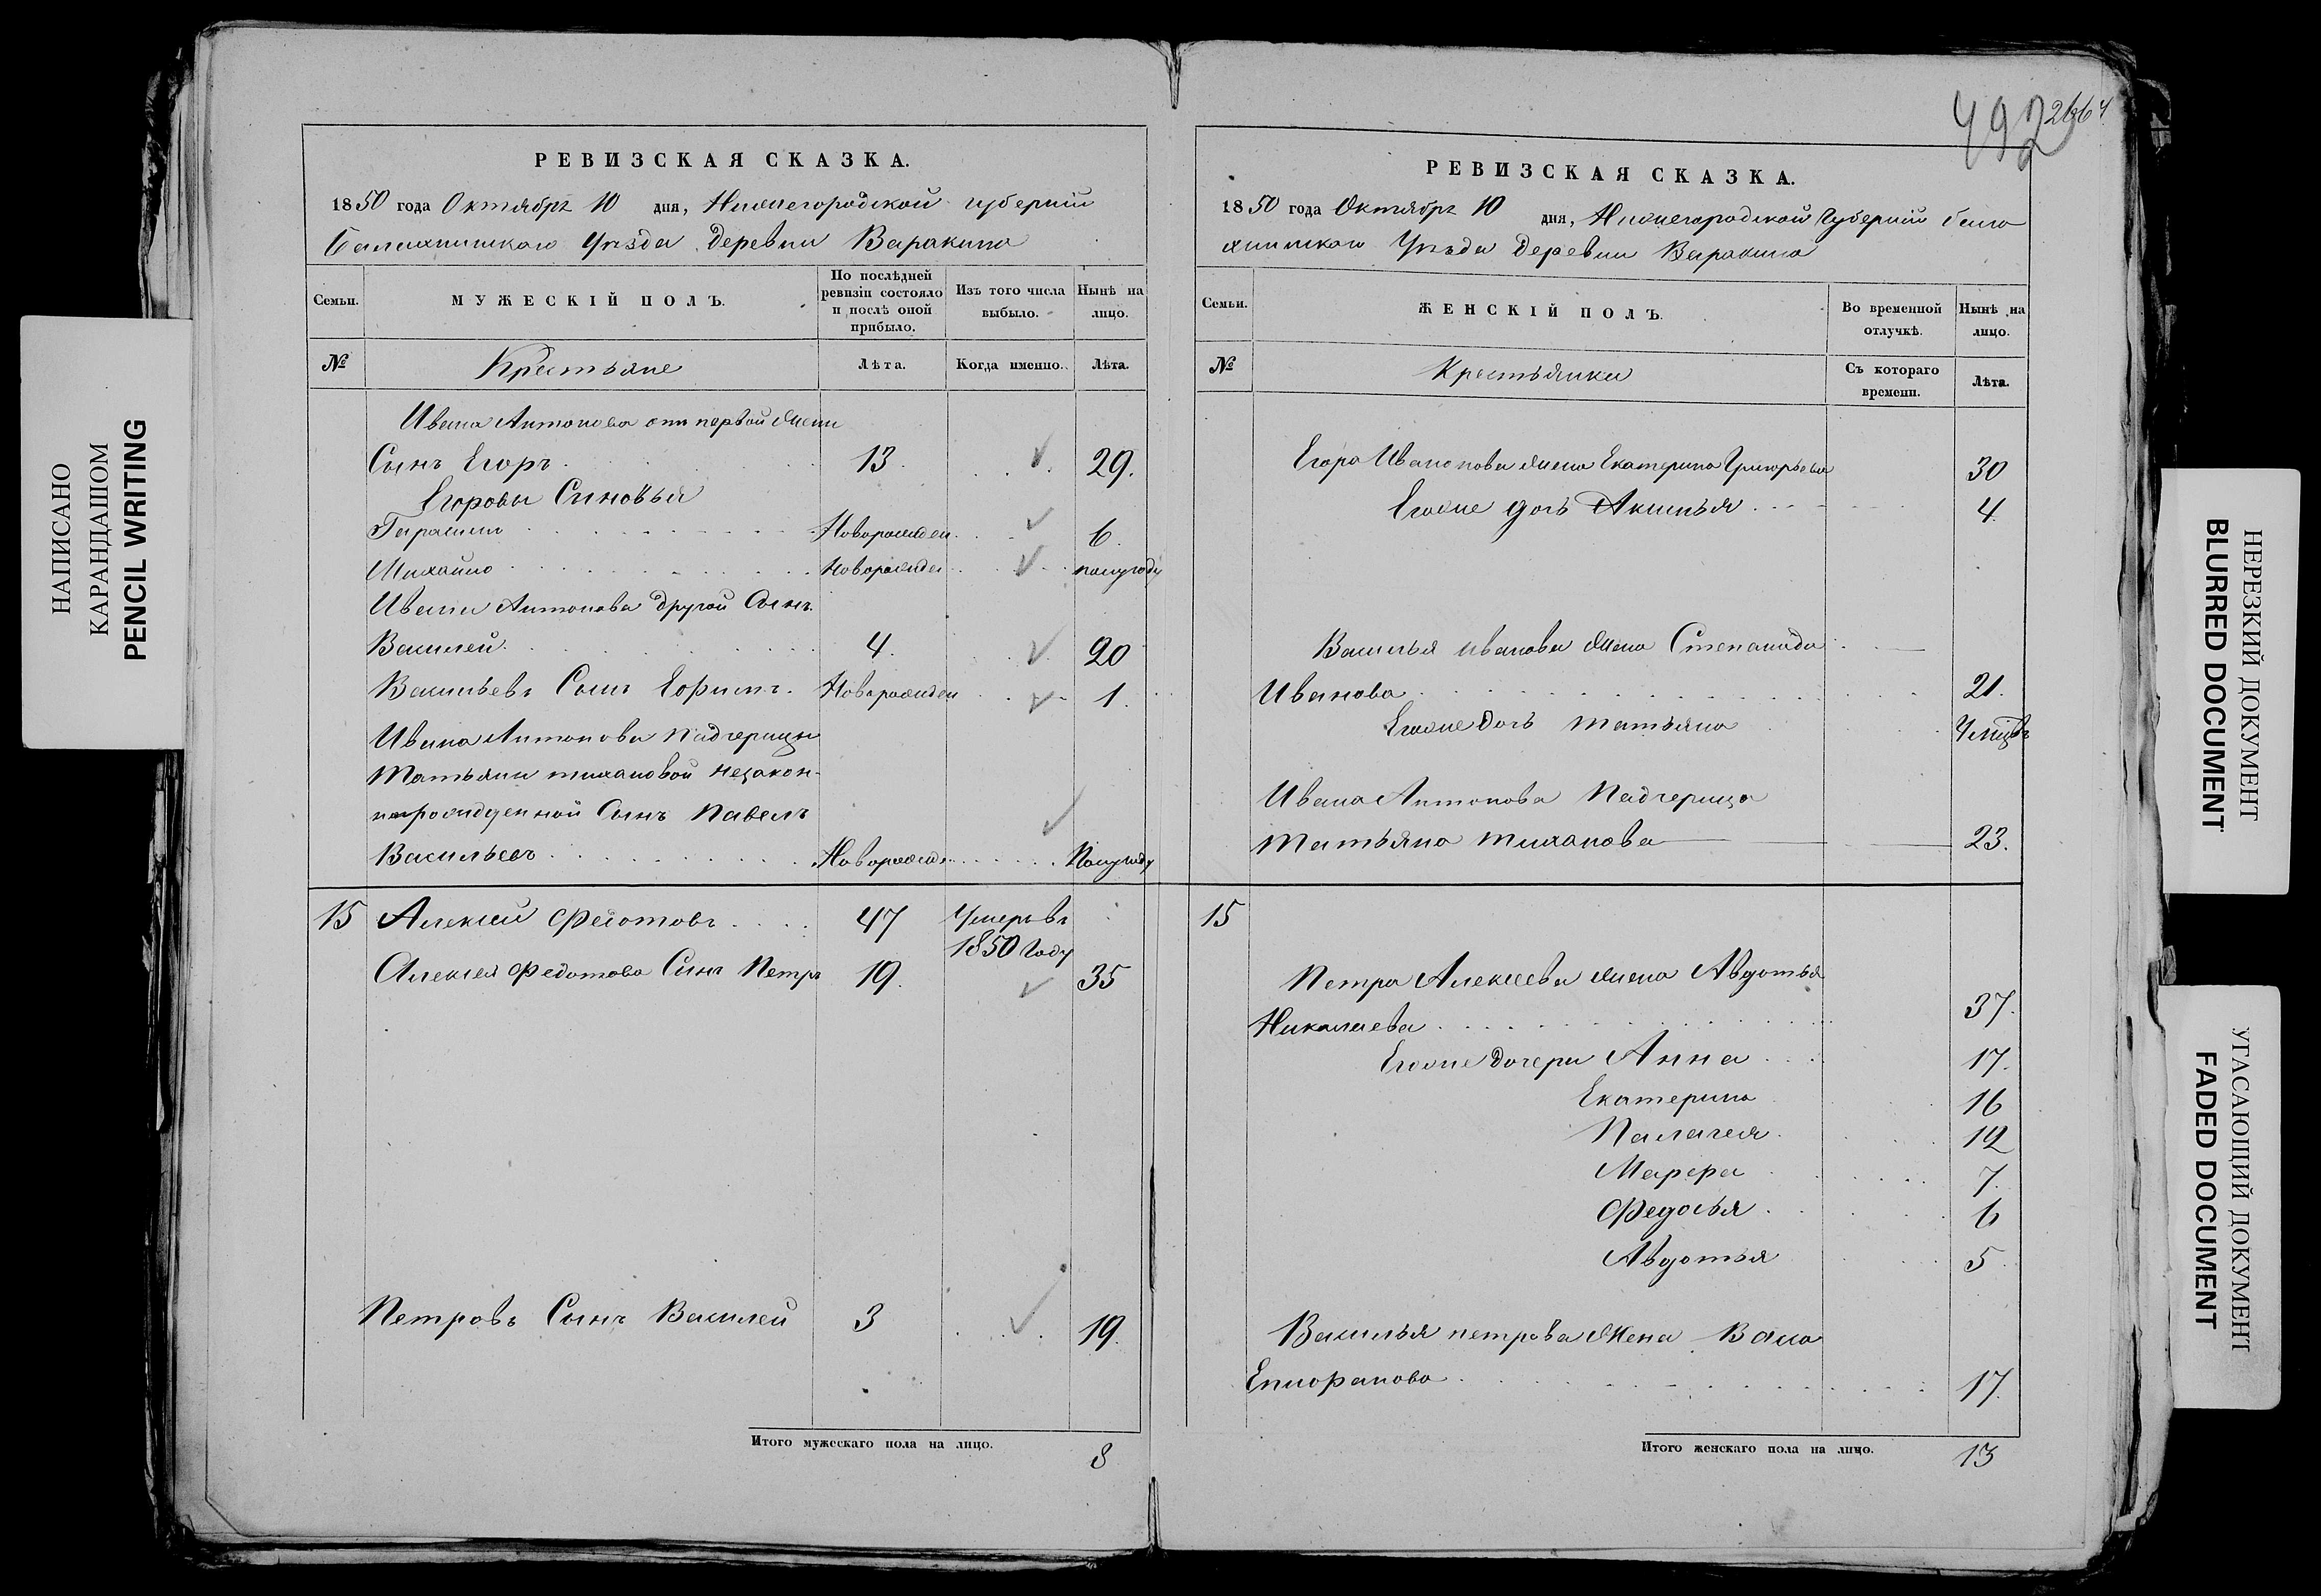 НАПИСАНО
КАРАНДАШОМ
PENCIL WRITING
РЕВИЗСКАЯ СКАЗКА.
1850 года Октября 10 дня, Нижегородской губернiи
Балахнинскаго Уѣзда Деревни Варакина
Семьи.
МУЖЕСКIЙ ПОЛЪ.
По послѣдней ревизiи состояло и послѣ оной прибыло.
Изъ того числа выбыло.
Нынѣ на лицо.
№
Крестьяне
Лѣта.
Когда именно.
Лѣта.
Ивана Антонова отъ первой жены
Сынъ Егоръ 13. 29.
Егоровы Сыновья
Герасимъ Новорожден. 6.
Михайло Новорожде полугоду
Ивана Антонова другой Сынъ
Василей 4. 20
Васильевъ Сынъ Ефимъ. Новорожден 1.
Ивана Антонова падчерицы
Татьяны тихановой незакон-
норожденной Сынъ Павелъ
Васильевъ Новорожд. Полугоду
15 Алексей Федотовъ 47 Умеръ въ
1850 Году
Алексея Федотова Сынъ Петръ 19. 35
Петровъ Сынъ Василей 3 19.
Итого мужескаго пола на лицо. 8
492
РЕВИЗСКАЯ СКАЗКА.
1850 года Октября 10 дня, Нижегородской Губернiи бала
хнинскаго Уѣзда Деревни Варакина
Семьи.
ЖЕНСКIЙ ПОЛЪ.
Во временной отлучкѣ.
Нынѣ на лицо.
№
Крестьянки
Съ котораго времени.
Лѣта.
Егора Иванова жена Екатерина Григорьева 30
Егоже дочь Аксинья 4.
Василья иванова жена Степанида
Иванова 21.
Егоже дочь татьяна
Ивана Антонова Падчерица
татьяна тиханова 23.
15
Петра Алексеева жена Авдотья
Николаева 37.
Егоже дочери Анна 17.
Екатерина 16
Палагея 12
Марфа 7.
Федосья 6
Авдотья 5
Василья петрова Жена
Епифанова 17.
Итого женскаго пола на лицо. 13
НЕРЕЗКИЙ ДОКУМЕНТ
BLURRED DOCUMENT
УГАСАЮЩИЙ ДОКУМЕНТ
FADED DOCUMENT